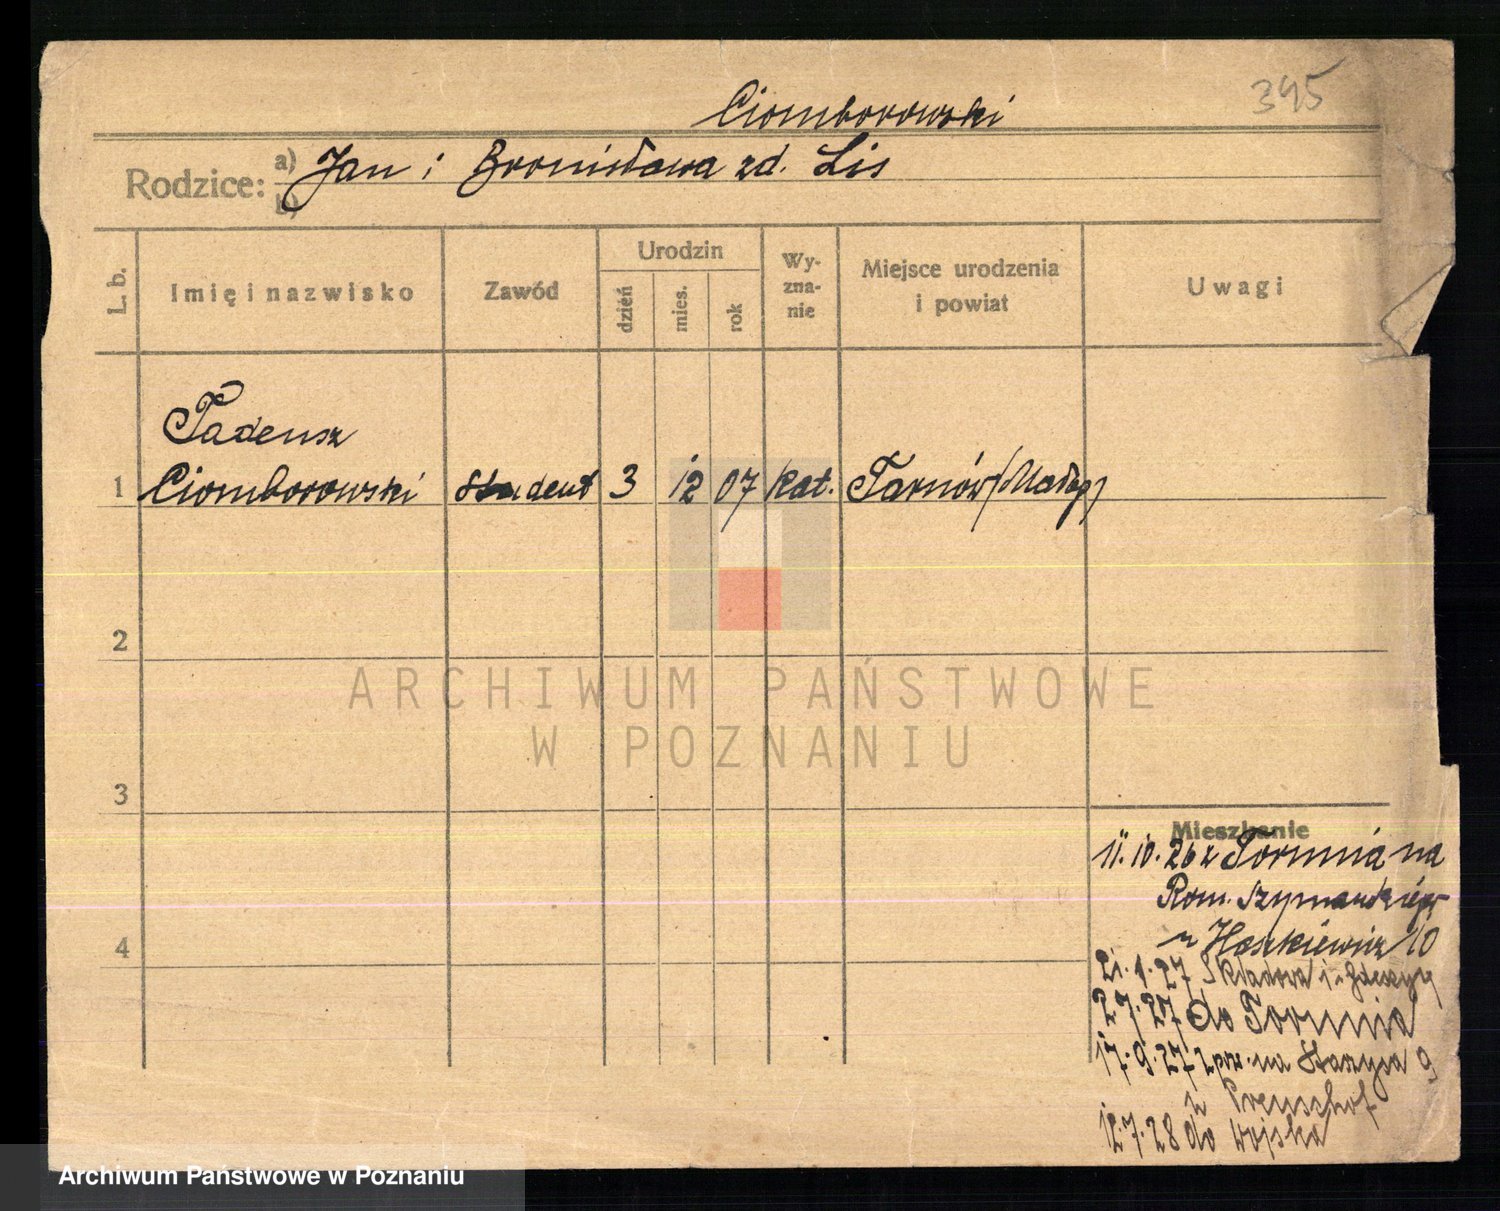 395
Ciomborowski
Rodzice: a) Jan i Bronisława zd. Lis
b)
L. b.
Imię i nazwisko
Zawód
Urodzin
dzień
mies.
rok
Wy-
zna-
nie
Miejsce urodzenia
i powiat
Uwagi
Tadeusz
1 Ciomborowski student 3 12 07 kat. Tarnów (Małop)
2
ARCHIWUM PAŃSTWOWE
W POZNANIU
3
Mieszkanie
11.10.26 z Torunia na
Rom. Szymańskiego
10
21.1.27 Składowa
2.7.27 do Torunia
17.9.27 na Staszyca 9
Preuschof
12.7.28 do wojska
4
Archiwum Państwowe w Poznaniu